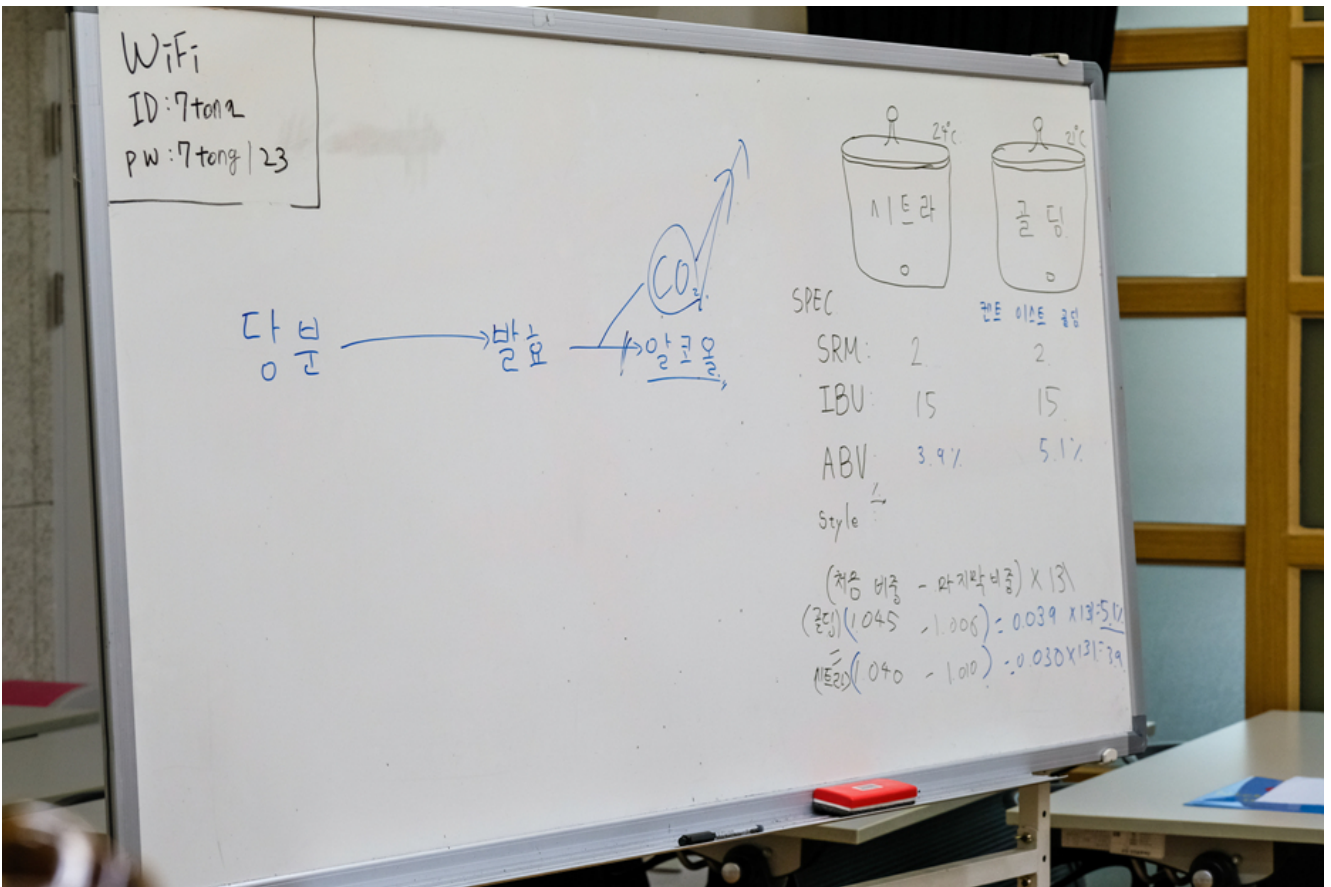 WiFi
ID:7tong
pw:7tong123
당분 → 발효 → 알코올
CO₂
24°C
시트라
21°C
골딩
SPEC
켄트 이스트 골딩
SRM: 2 2
IBU: 15 15
ABV: 3.9% 5.1%
Style :
(처음 비중 - 마지막 비중) X 131
(골딩)(1.045 - 1.006) = 0.039 X131=5.1%
(시트라)(1.040 - 1.010) = 0.030X131=3.9